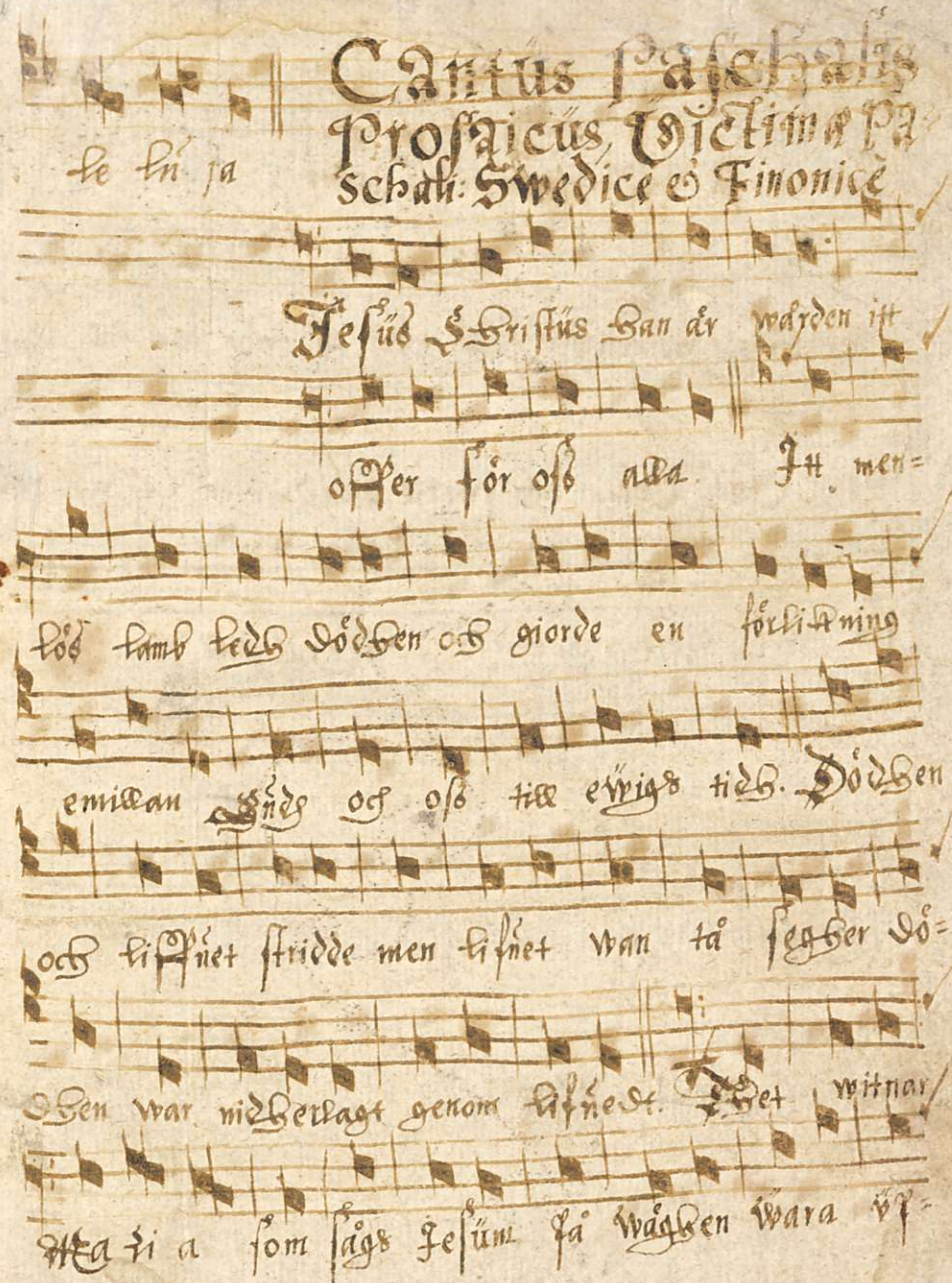 Cantus Paschalis
Prosaicus, Victimæ Pa-
le lu ja
schali: Swedice & Finonicè
Jesus Christus han är wärden itt
offer för oss alla Itt men=
lös lamb ledh dödhen och giorde en förlikning
emillan Gudh och oss till ewigh tidh. Dödhen
och liffuet stridde men lifuet wan tå segher dö=
dhen war nidherlagt genom lifuedt. Thet witnar
Maria som sågh Jesum på wäghen wara up=